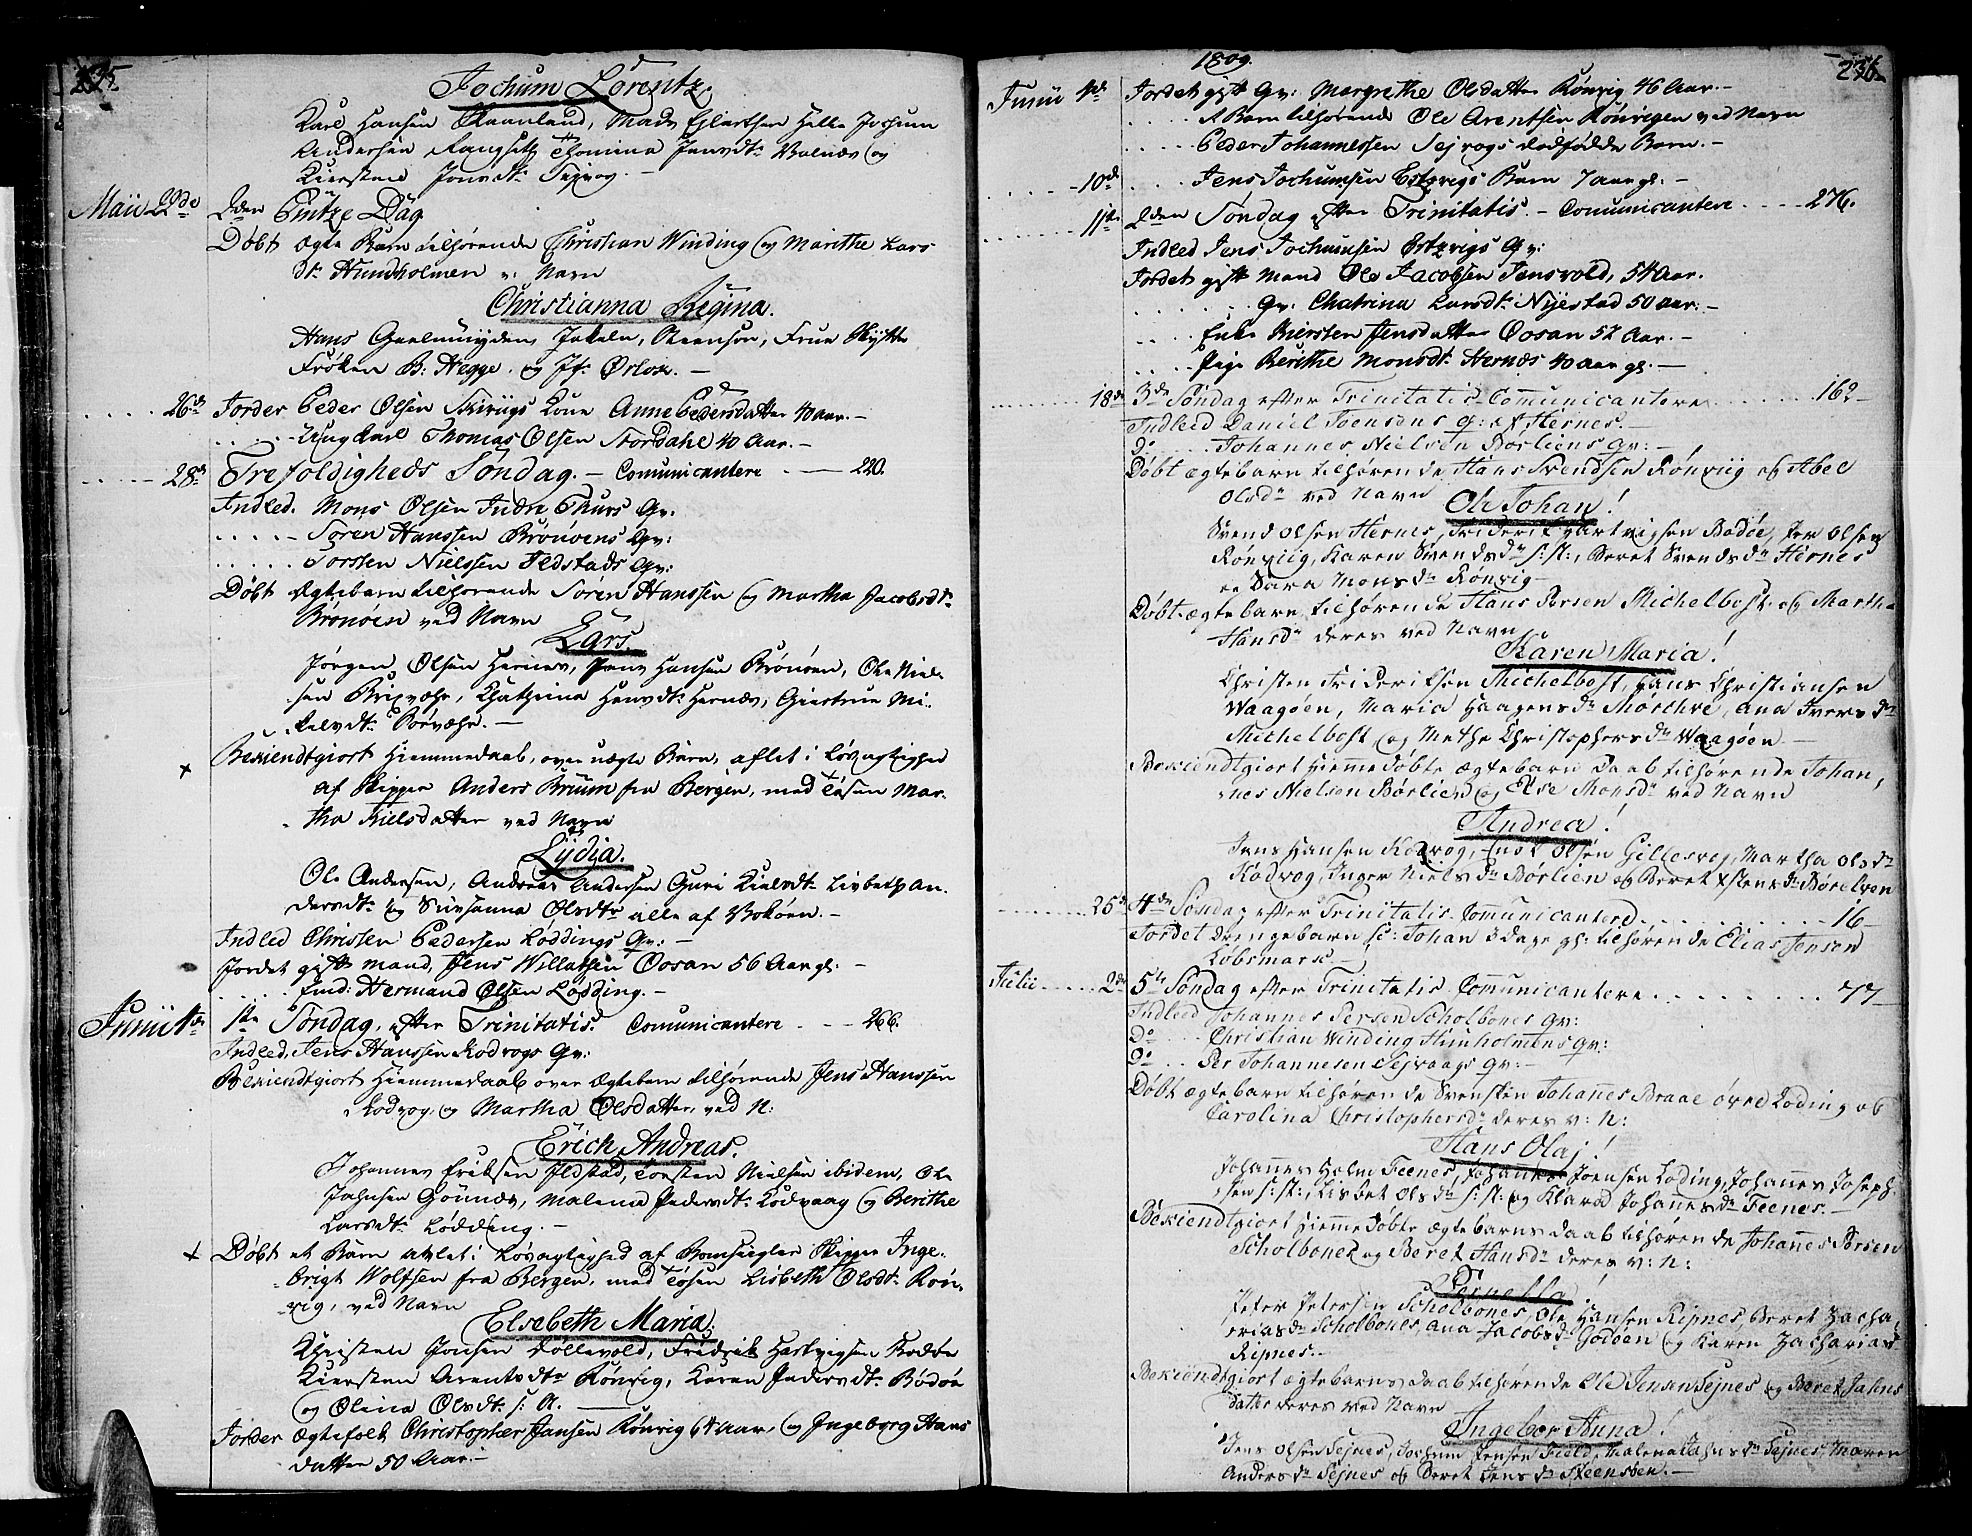 235
Jochum Lorentz.
Karl Hansen Skaanland, Mads Ejlertsen Helle Jochum
Andersen Langseth Thomina Jensdtr Valnæs og
Kiersten Jonsdtr Seyvog. –
Maii 22de 2den Pintze Dag
Døbt ægte Barn tilhørende Christian Winding og Marithe Lars
dtr Hundholmen v: Navn
Christianna Regina.
Hans Gaelmuyden, Jakeln, Steenson, Frue Skytte
Frøken B: Hegge. og Jf: –
26de Jordet Peder Olsen Skivigs Kone Anne Pedersdatter 40 aar. –
Ung Karl Thomas Olsen Nordahl 40 Aar. –
28de Trefoldigheds Søndag. – Comunicantere 220.
Indled. Mons Olsen Indre Thurs Qv:
Søren Hanssen Brönöens Qv:
Torsten Nielssen Ildstads Qv:
Døbt ægtebarn tilhørende Søren Hanssen og Martha Jacobsdtr
Brönöen ved Navn
Lars.
Jørgen Olsen Hernes, Jens Hansen Brönöen, Ole Niel-
sen Brixvær, Chathrina Hansdtr Hernæs, Giertrue Mi-
kelsdtr –
+ Bekiendtgiort Hiemmedaab, over uægte Barn, aflet i Løsagtighed
af Skipper Anders Bruun fra Bergen, med Tøsen Mar-
tha Kielsdatter ved Navn
Lÿdia.
Ole Andersen, Andreas Andersen Guri Kielsdtr Lisbeth An-
dersdtr og Susanna Olsdtr alle af –
Indled Christen Pedersen Löddings Qv: –
Jordet gift Mand, Jens Willatsen Oosan 56 Aar gl: –
Ind: Hermand Olsen Lödding. –
Junii 4de 1ste Søndag efter Trinitatis. Comunicantere 266.
Indled. Jens Hanssen Kodvogs Qv:
Bekiendtgiort Hiemmedaab over Ægtebarn tilhørende Jens Hanssen
Kodvog og Martha Olsdatter, ved N:
Erich Andreas.
Johannes Eriksen Ildstad, Torsten Nielsen ibidem, Ole
Johnsen Malena Pedersdtr Kodvaag og Berithe
Larsdtr Lödding. –
+ Døbt et Barn avlet i Løsagtighed af Skipper Inge-
brigt Wolfsen fra Bergen, med Tøsen Lisbeth Olsdtr Rön-
vig, ved Navn
Elsebeth Maria.
Christen Jonsen Löllevold, Fredrik Hartvigsen Bodøe
Kiersten Arentsdtr Rönvig, Karen Pedersdtr Bodøe
og Olina Olsdtr s: St.
Jordet Ægtefolk Christopher Jansen Rönvig 64 Aar, og Ingeborg Hans
datter 50 Aar. –
1809.
236
Junii 4de Jordet gift Qv: Margrethe Olsdatter Rönvig 46 Aar. –
1 Barn tilhørende Ole Arentsen Rönvigen ved Navn
Peder Johannessen Sejvogs dødfødde Barn. –
10de Jens Jochumsen Estzvigs Barn 7 aar gl. –
11te 2den Søndag efter Trinitatis. – Comunicantere 276.
Indled Jens Jochumsen Estzvigs Qv:
Jordet gift Mand Ole Jacobsen Jensvold, 54 Aar.
Qv: Chatrina Larsdt: Nyestad 50 aar. –
Enke Kiersten Jensdatter Oosan 52 Aar. –
Pige Berithe Monsdt: Hernæs 40 aar gl. –
18de 3de Søndag efter Trinitatis Communicantere 162
Indleed Daniel Joensens Q: af Hernes. –
Do Johannes Nielsen Børliens Qv: –
Døbt ægtebarn tilhørende Hans Svendsen Rönviig og Abel
Olsdr ved Navn
Ole Johan!
Svend Olsen Hernes, Friderik Hartvigsen Bodøe, Per Olsen
Rönviig, Karen Svendsdr s: st:, Beret Svendsdr Hernes
og Sara Monsdr Rönvig –
Døbt ægtebarn tilhørende Hans Persen Michelbost og Marth-
Hansdr deres ved Navn
Karen Maria!
Christen Frideriksen Michelbost, Hans Christiansen
Waagöen, Maria Haagensdr Mörchve, Ana Iversdr
Michelbost og Methe Christophersdr Waagöen –
Bekiendtgiort Hiemmedøbte Ægtebarn Daab tilhørende Johan-
nes Nielsen Børlien og Else Monsdr ved Navn
Andrea!
Jens Hansen Kodvog, Enok Olsen Gillesvog, Martha Olsdr
Kodvog, Inger Nielsdr Børlien og Beret Ystensdr Børelven
25de 4de Søndag efter Trinitatis Communicantere 16 –
Jordet Drengebarn N: Johan 3 Dage gl: tilhørende Elias Jensen
Löbsmark –
Julii 2de 5te Søndag efter Trinitatis Communicantere 77 –
Indleed Johannes Persen Scholbones Qv:
Do Christian Winding Hunholmens Qv:
Do Per Johannesen Sejvaags Qv: –
Døbt ægtebarn tilhørende Svensken Johanes Braae Löding og
Carolina Christophersdr deres v: N:
Hans Olaj!
Johannes Holm Feenes, Johannes Joensen Löding, Johannes Joseph-
sen s: st:, Lisbet Olsdr s: st: og Klara Johanesdr Feenes. –
Bekiendtgiort Hiemmedøbte ægtebarns daab tilhørende Johanes Persen
Scholbones og Beret Hansdr deres v: N:
Pernella!
Peter Petersen Scholbones, Ole Hansen Ripnes, Beret Zacha-
eriasdr Scholbones, Ana Jacobsdr Godöen og Karen Zacharias
Ripnes. –
Bekiendtgiort ægtebarns daab tilhørende Ole Jensen Sejnes og Beret Jahns
datter deres ved Navn
Ingebor Anna!
Jens Olsen Sejnes, Jochum Jensen Field, Malena Jahnsdr Sejnes, Maren
Andersdr Sejnes og Beret Jensdr Steensöen. –